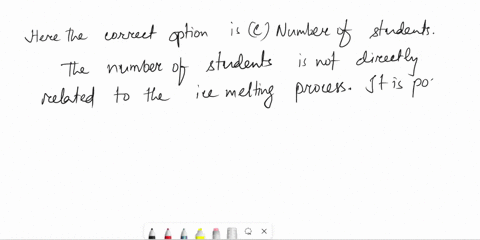 Here the correct option is (c) Number of students.
The number of students is not directly
related to the ice melting process. It is po